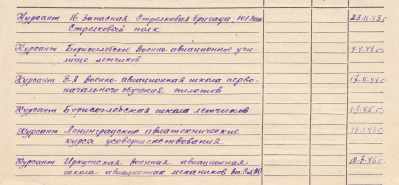 Курсант 16 Запасная Стрелковая бригада, 101 Зап. 23.11.43г.
Стрелковый полк
Курсант Борисоглебское военно-авиационное учи- 4.4.44г.
лище летчиков
Курсант 8-я военно-авиационная школа перво- 17.11.44г.
начального обучения пилотов
Курсант Борисоглебская школа летчиков 1.9.45г.
Курсант Ленинградские авиатехнические
курсы усовершенствования
Курсант Иркутская военная авиационная 18.7.46г.
школа авиационных механиков